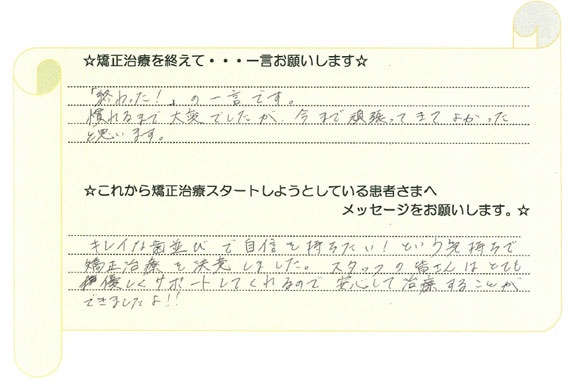 ☆矯正治療を終えて・・・一言お願いします☆
「終わった！」の一言です。
慣れるまで大変でしたが、今まで頑張ってきてよかった
と思います。
☆これから矯正治療スタートしようとしている患者さまへ
メッセージをお願いします。☆
キレイな歯並びで自信を持ちたい！という気持ちで
矯正治療を決意しました。スタッフの皆さんはとても
優しくサポートしてくれるので安心して治療することが
できましたよ!!